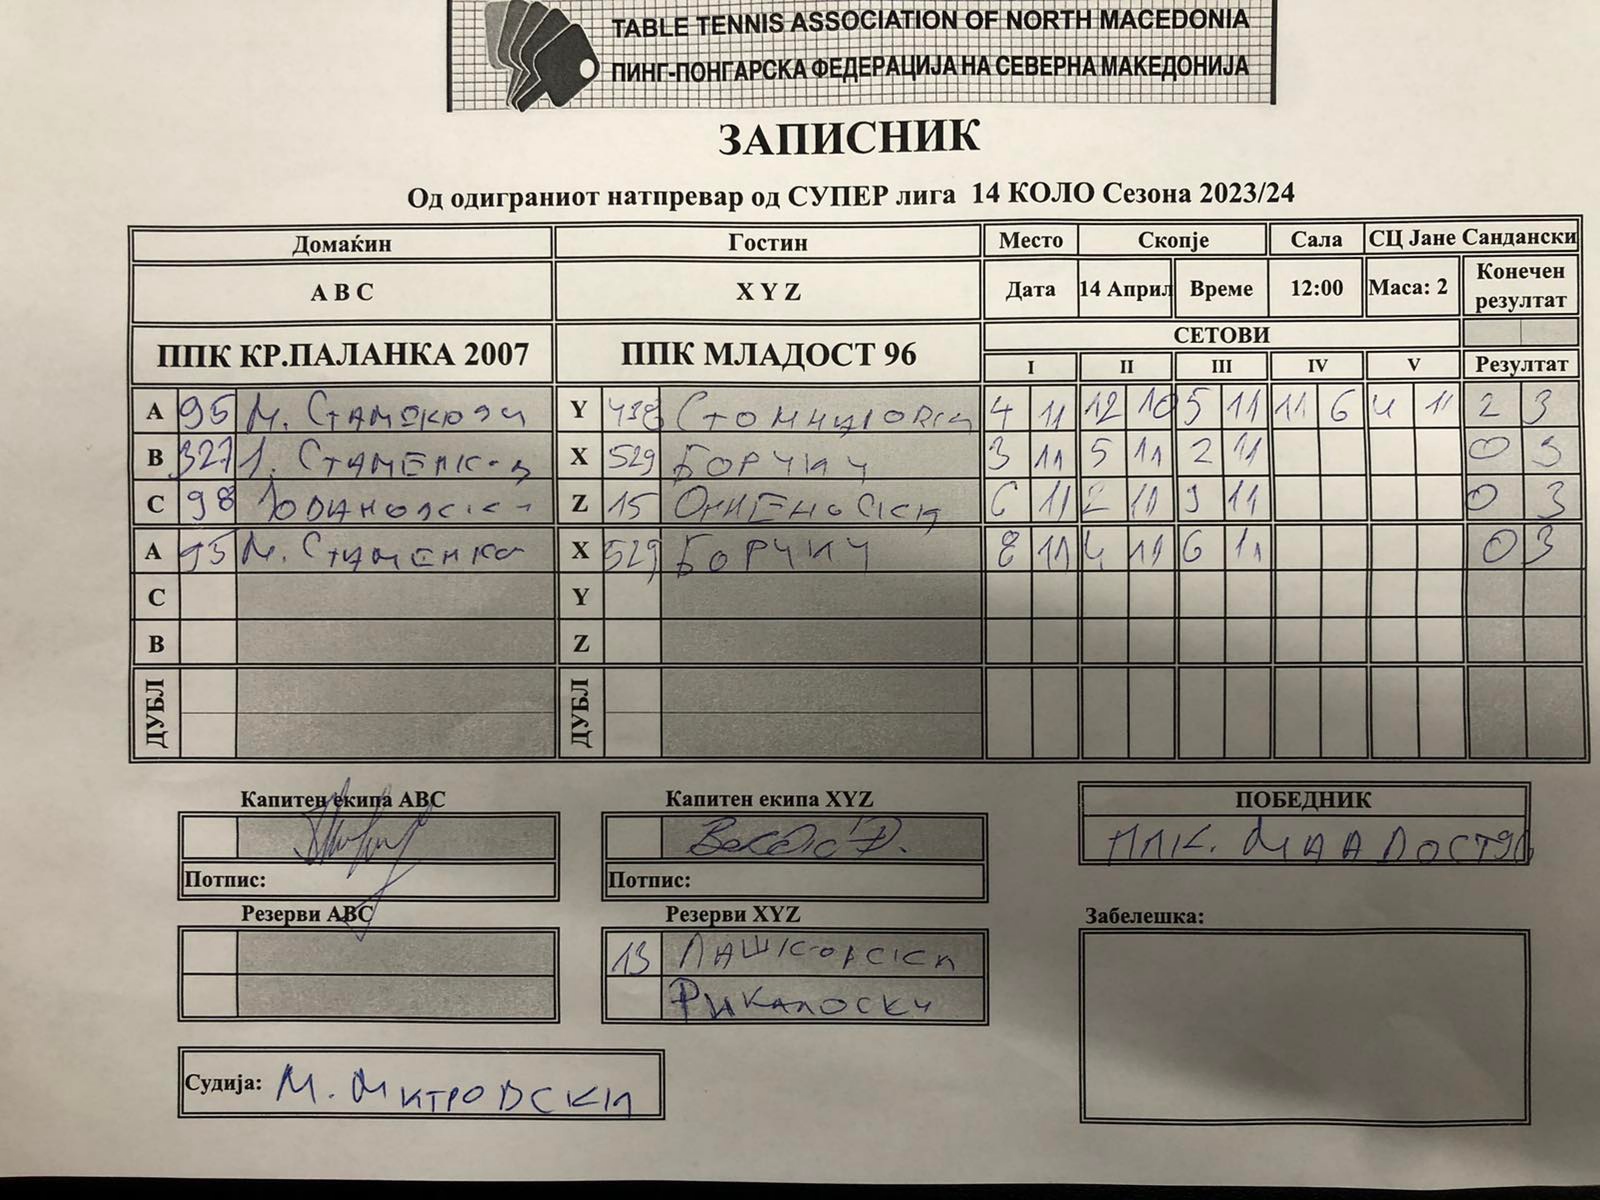 TABLE TENNIS ASSOCIATION OF NORTH MACEDONIA
ПИНГ-ПОНГАРСКА ФЕДЕРАЦИЈА НА СЕВЕРНА МАКЕДОНИЈА
ЗАПИСНИК
Од одиграниот натпревар од СУПЕР лига 14 КОЛО Сезона 2023/24
Домаќин Гостин Место Скопје Сала СЦ Јане Сандански
A B C X Y Z Дата 14 Април Време 12:00 Маса: 2 Конечен резултат
ППК КР.ПАЛАНКА 2007 ППК МЛАДОСТ 96 СЕТОВИ
I II III IV V Резултат
A 95 М. Y 4 11 12 10 5 11 11 6 4 11 2 3
B 327 X 529 БОРЧИЧ 3 11 5 11 2 11 0 3
C 98 Z 15 6 11 2 11 9 11 0 3
A 95 М. СТАМЕНКО X 529 БОРЧИЧ 8 11 4 11 6 11 0 3
C Y
B Z
ДУБЛ ДУБЛ
Капитен екипа ABC Капитен екипа XYZ ПОБЕДНИК
ППК. МЛАДОСТ 96
Потпис: Потпис:
Резерви ABC Резерви XYZ Забелешка:
13 ЛАШКОРСКИ
РИКАЛОСКИ
Судија: М. МИТРОВСКИ